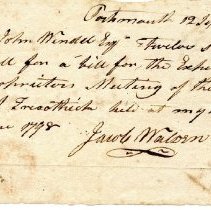 Portsmouth 12 J
John Wendell Esqr Twelve s
ll for a bill for the Expe
oprietors Meeting of the
Trecothick held at my
1798
Jacob Walden